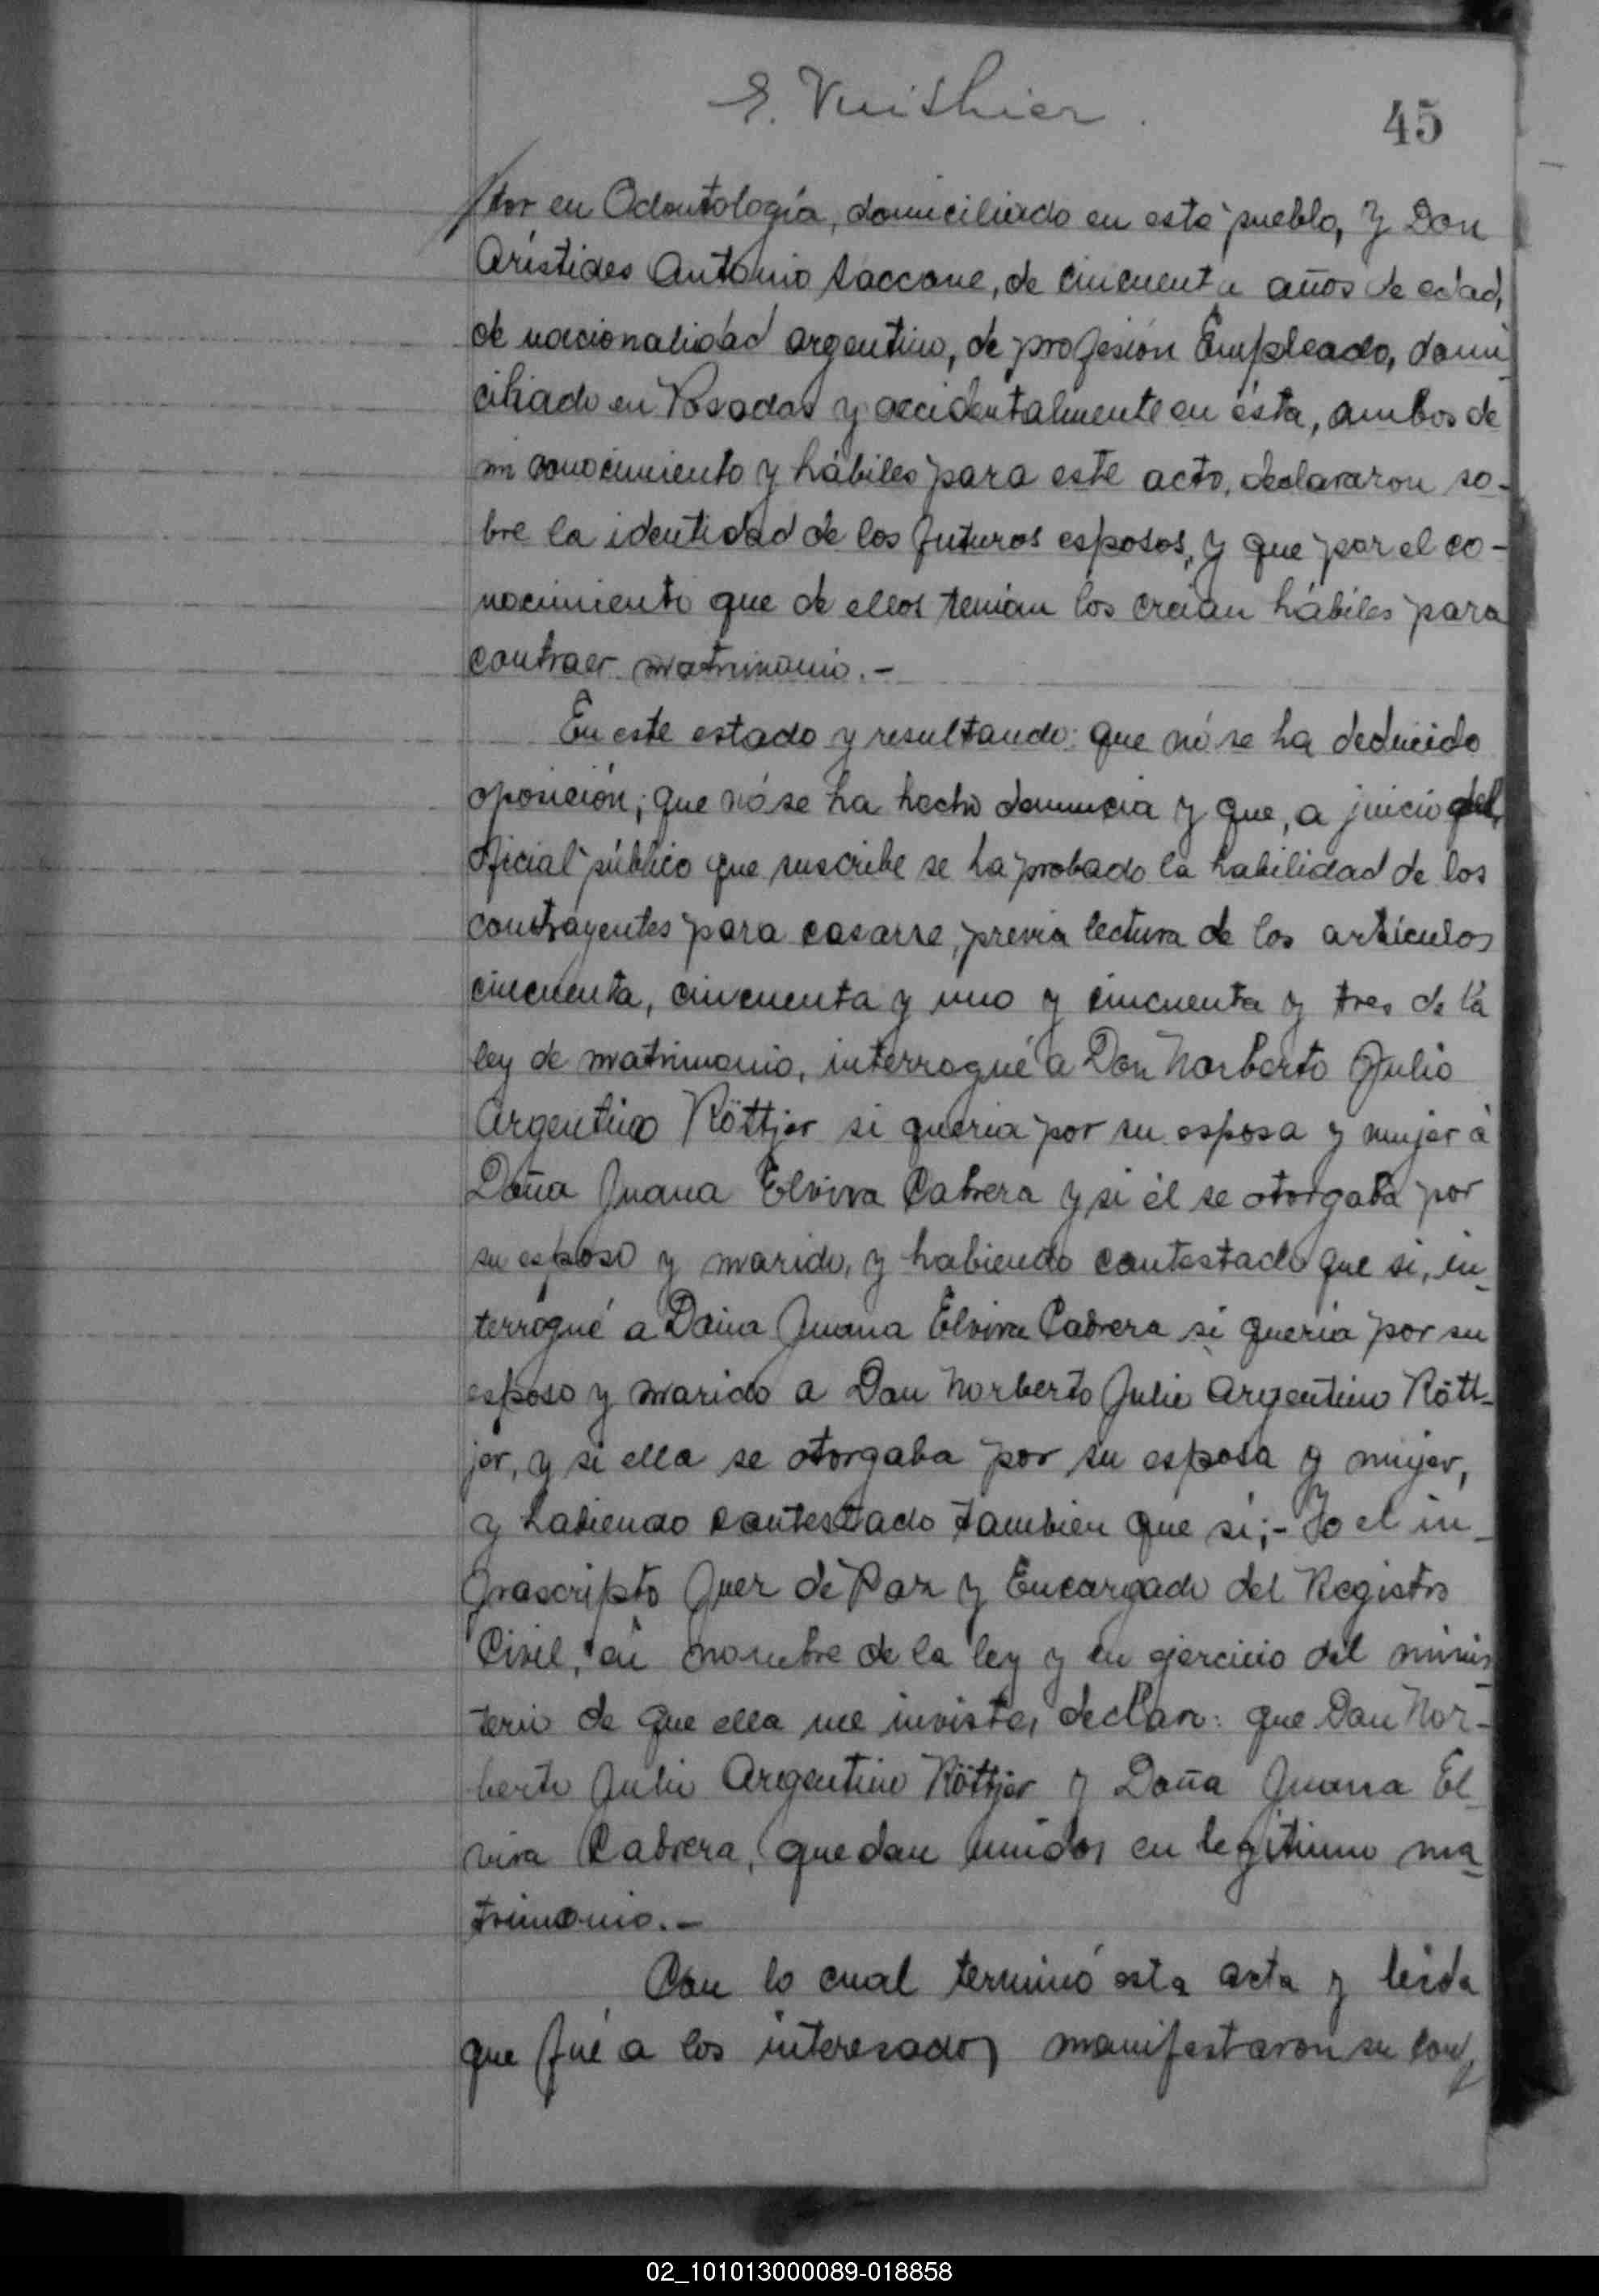 E. Vuithier.
45
/tor en Odontología, domiciliado en este pueblo, y Don
Arístides Antonio Saccone, de cincuenta años de edad,
de nacionalidad argentino, de profesión Empleado, domi-
ciliado en Posadas y accidentalmente en ésta, ambos de
mi conocimiento y hábiles para este acto, declararon so-
bre la identidad de los futuros esposos, y que por el co-
nocimiento que de ellos tenían los creían hábiles para
contraer matrimonio.-
En este estado y resultando: que nó se ha deducido
oposición; que nó se ha hecho denuncia y que, a juicio del
oficial público que suscribe se ha probado la habilidad de los
contrayentes para casarse, previa lectura de los artículos
cincuenta, cincuenta y uno y cincuenta y tres de la
ley de matrimonio, interrogué a Don Norberto Julio
Argentino Röttjer si quería por su esposa y mujer á
Doña Juana Elvira Cabrera y si él se otorgaba por
su esposo y marido, y habiendo contestado que si, in-
terrogué a Doña Juana Elvira Cabrera si quería por su
esposo y marido a Don Norberto Julio Argentino Rött-
jer, y si ella se otorgaba por su esposa y mujer,
y habiendo contestado también que sí;- Yo el in-
frascripto Juez de Paz y Encargado del Registro
Civil, en nombre de la ley y en ejercicio del minis-
terio de que ella me inviste, declaro: que Don Nor-
berto Julio Argentino Röttjer y Doña Juana El-
vira Cabrera, quedan unidos en legítimo ma-
trimonio.-
Con lo cual terminó esta acta y leída
que fué a los interesados manifestaron su conf
02_101013000089-018858